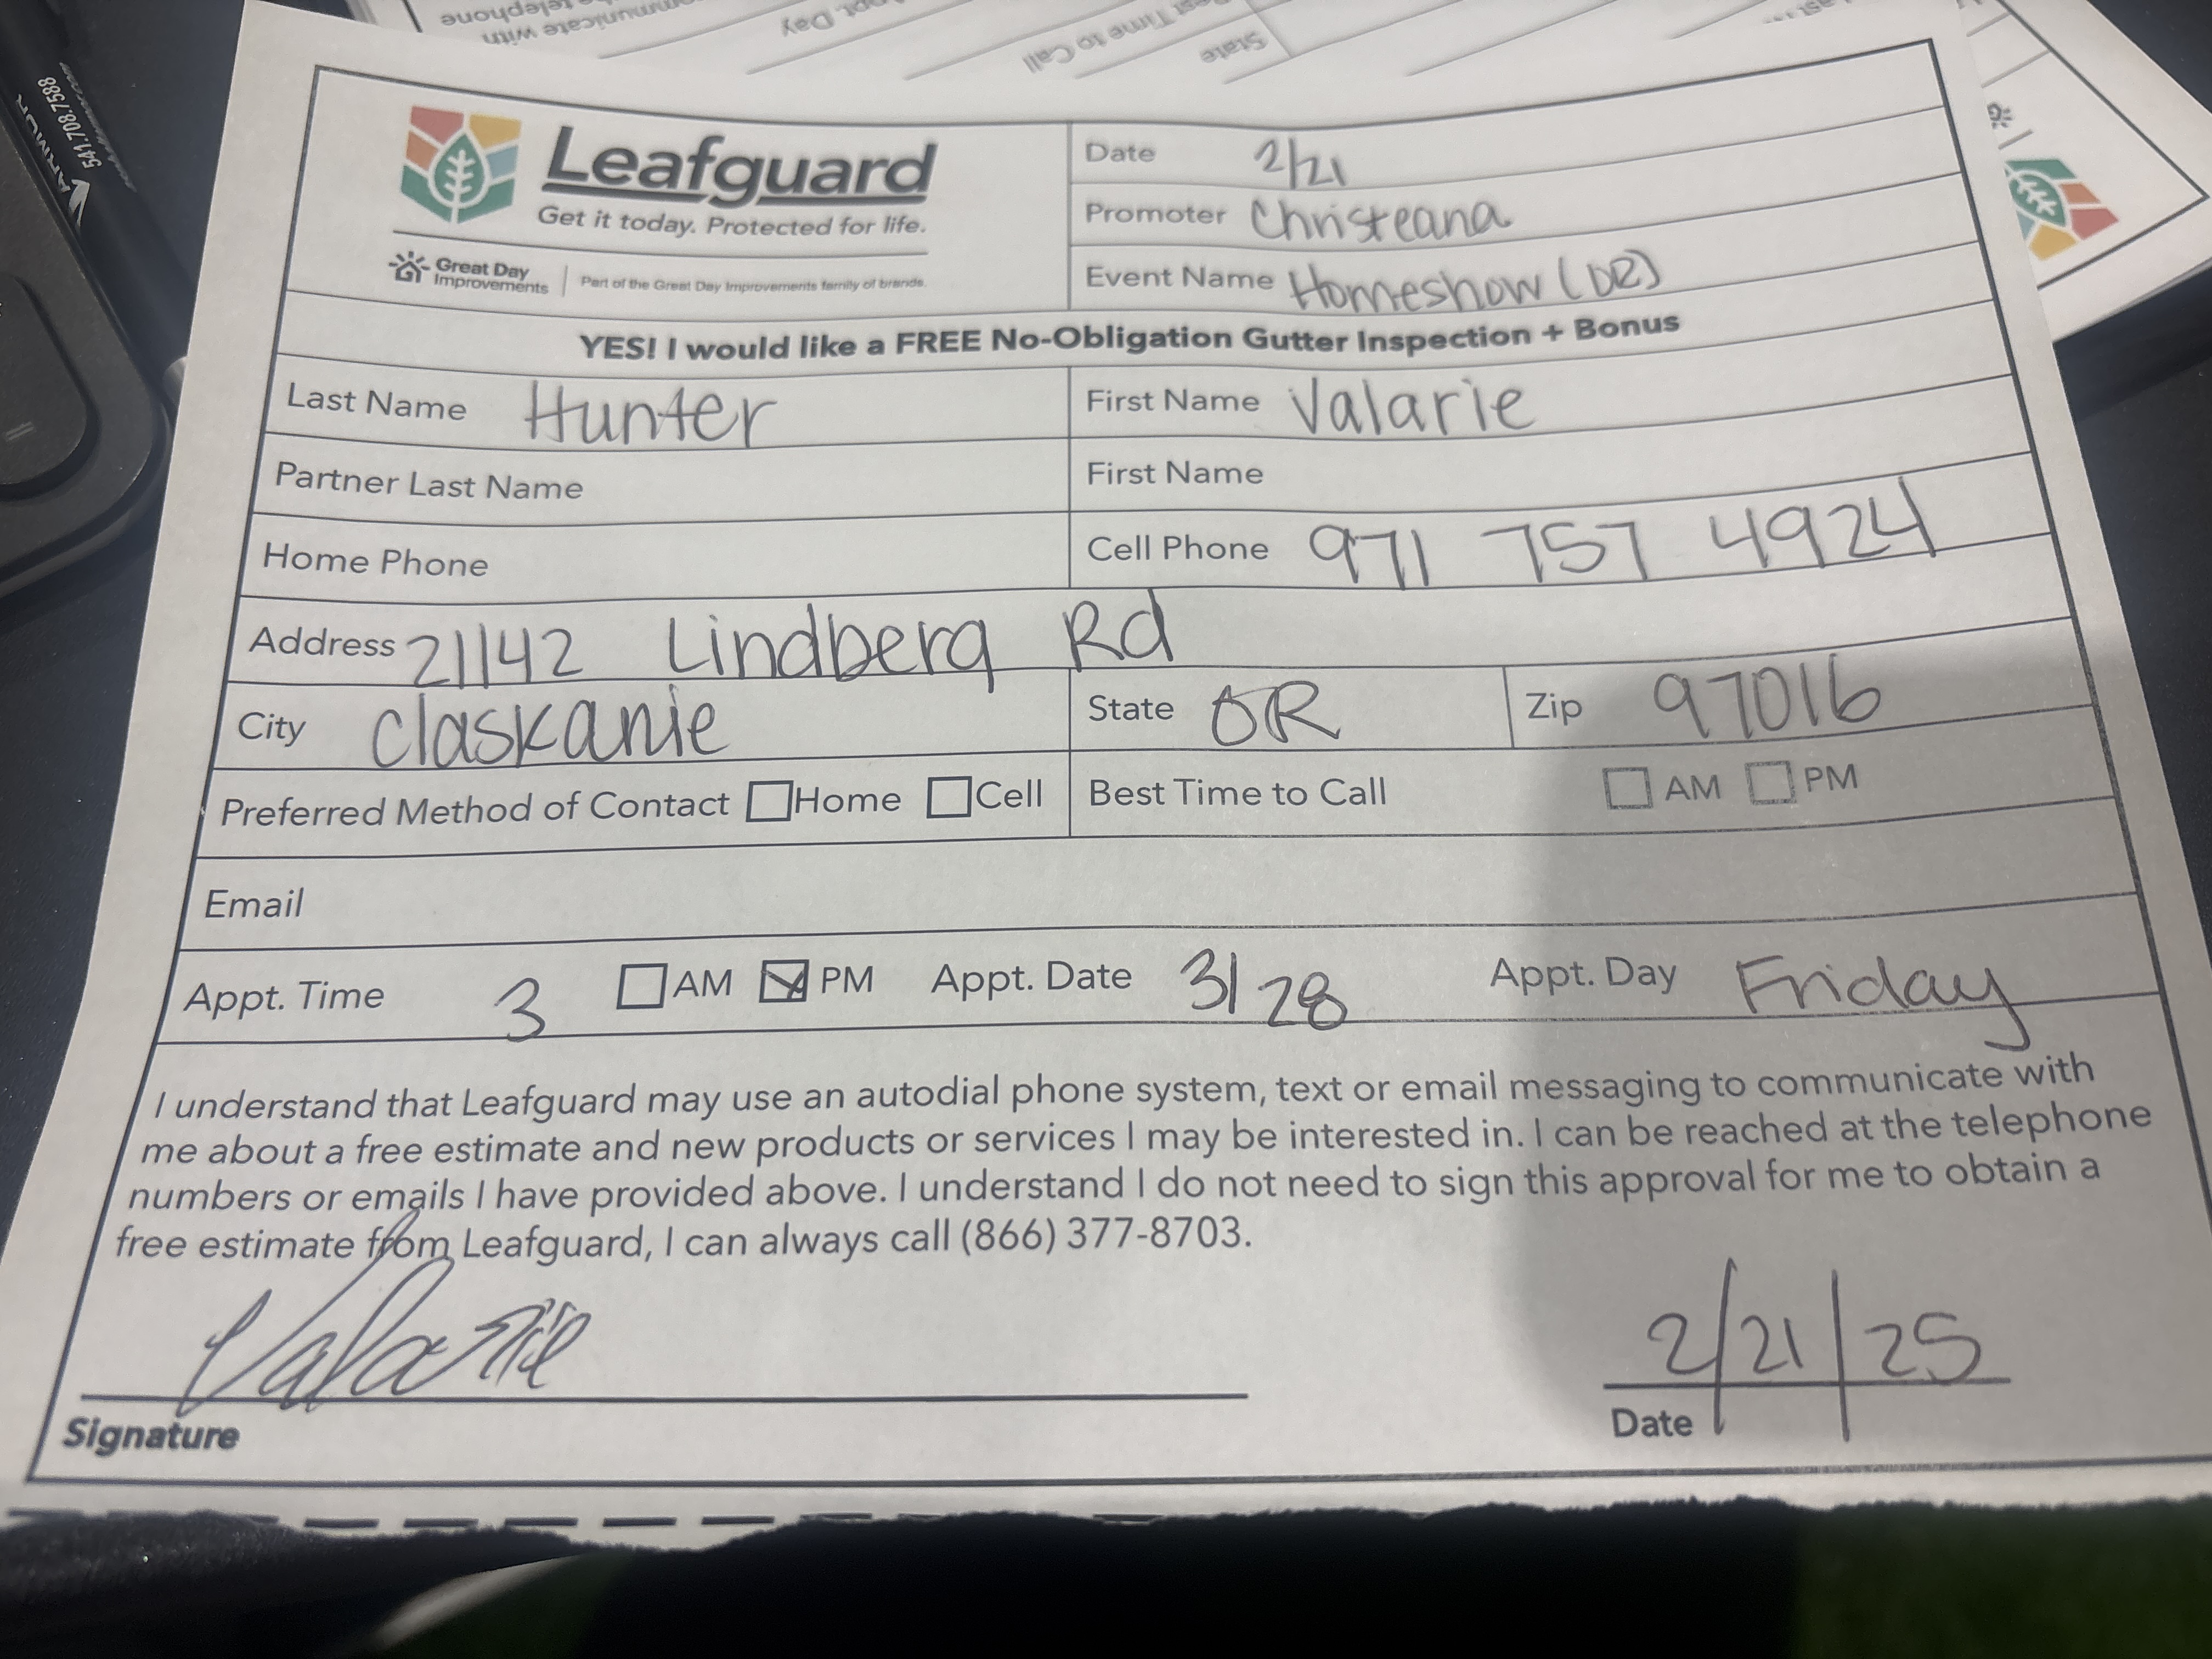 Leafguard
Get it today. Protected for life.
Great Day Improvements | Part of the Great Day Improvements family of brands.
Date 2/21
Promoter Christeana
Event Name Homeshow (DR)
YES! I would like a FREE No-Obligation Gutter Inspection + Bonus
Last Name Hunter First Name Valarie
Partner Last Name First Name
Home Phone Cell Phone 971 757 4924
Address 21142 Lindberg Rd
City Claskanie State OR Zip 97016
Preferred Method of Contact ☐ Home ☐ Cell Best Time to Call ☐ AM ☐ PM
Email
Appt. Time 3 ☐ AM ☑ PM Appt. Date 3/28 Appt. Day Friday
I understand that Leafguard may use an autodial phone system, text or email messaging to communicate with
me about a free estimate and new products or services I may be interested in. I can be reached at the telephone
numbers or emails I have provided above. I understand I do not need to sign this approval for me to obtain a
free estimate from Leafguard, I can always call (866) 377-8703.
2/21/25
Signature Date
ARMOR
541.708.7588
telephone
mmunicate with
Day
Time to Call
State